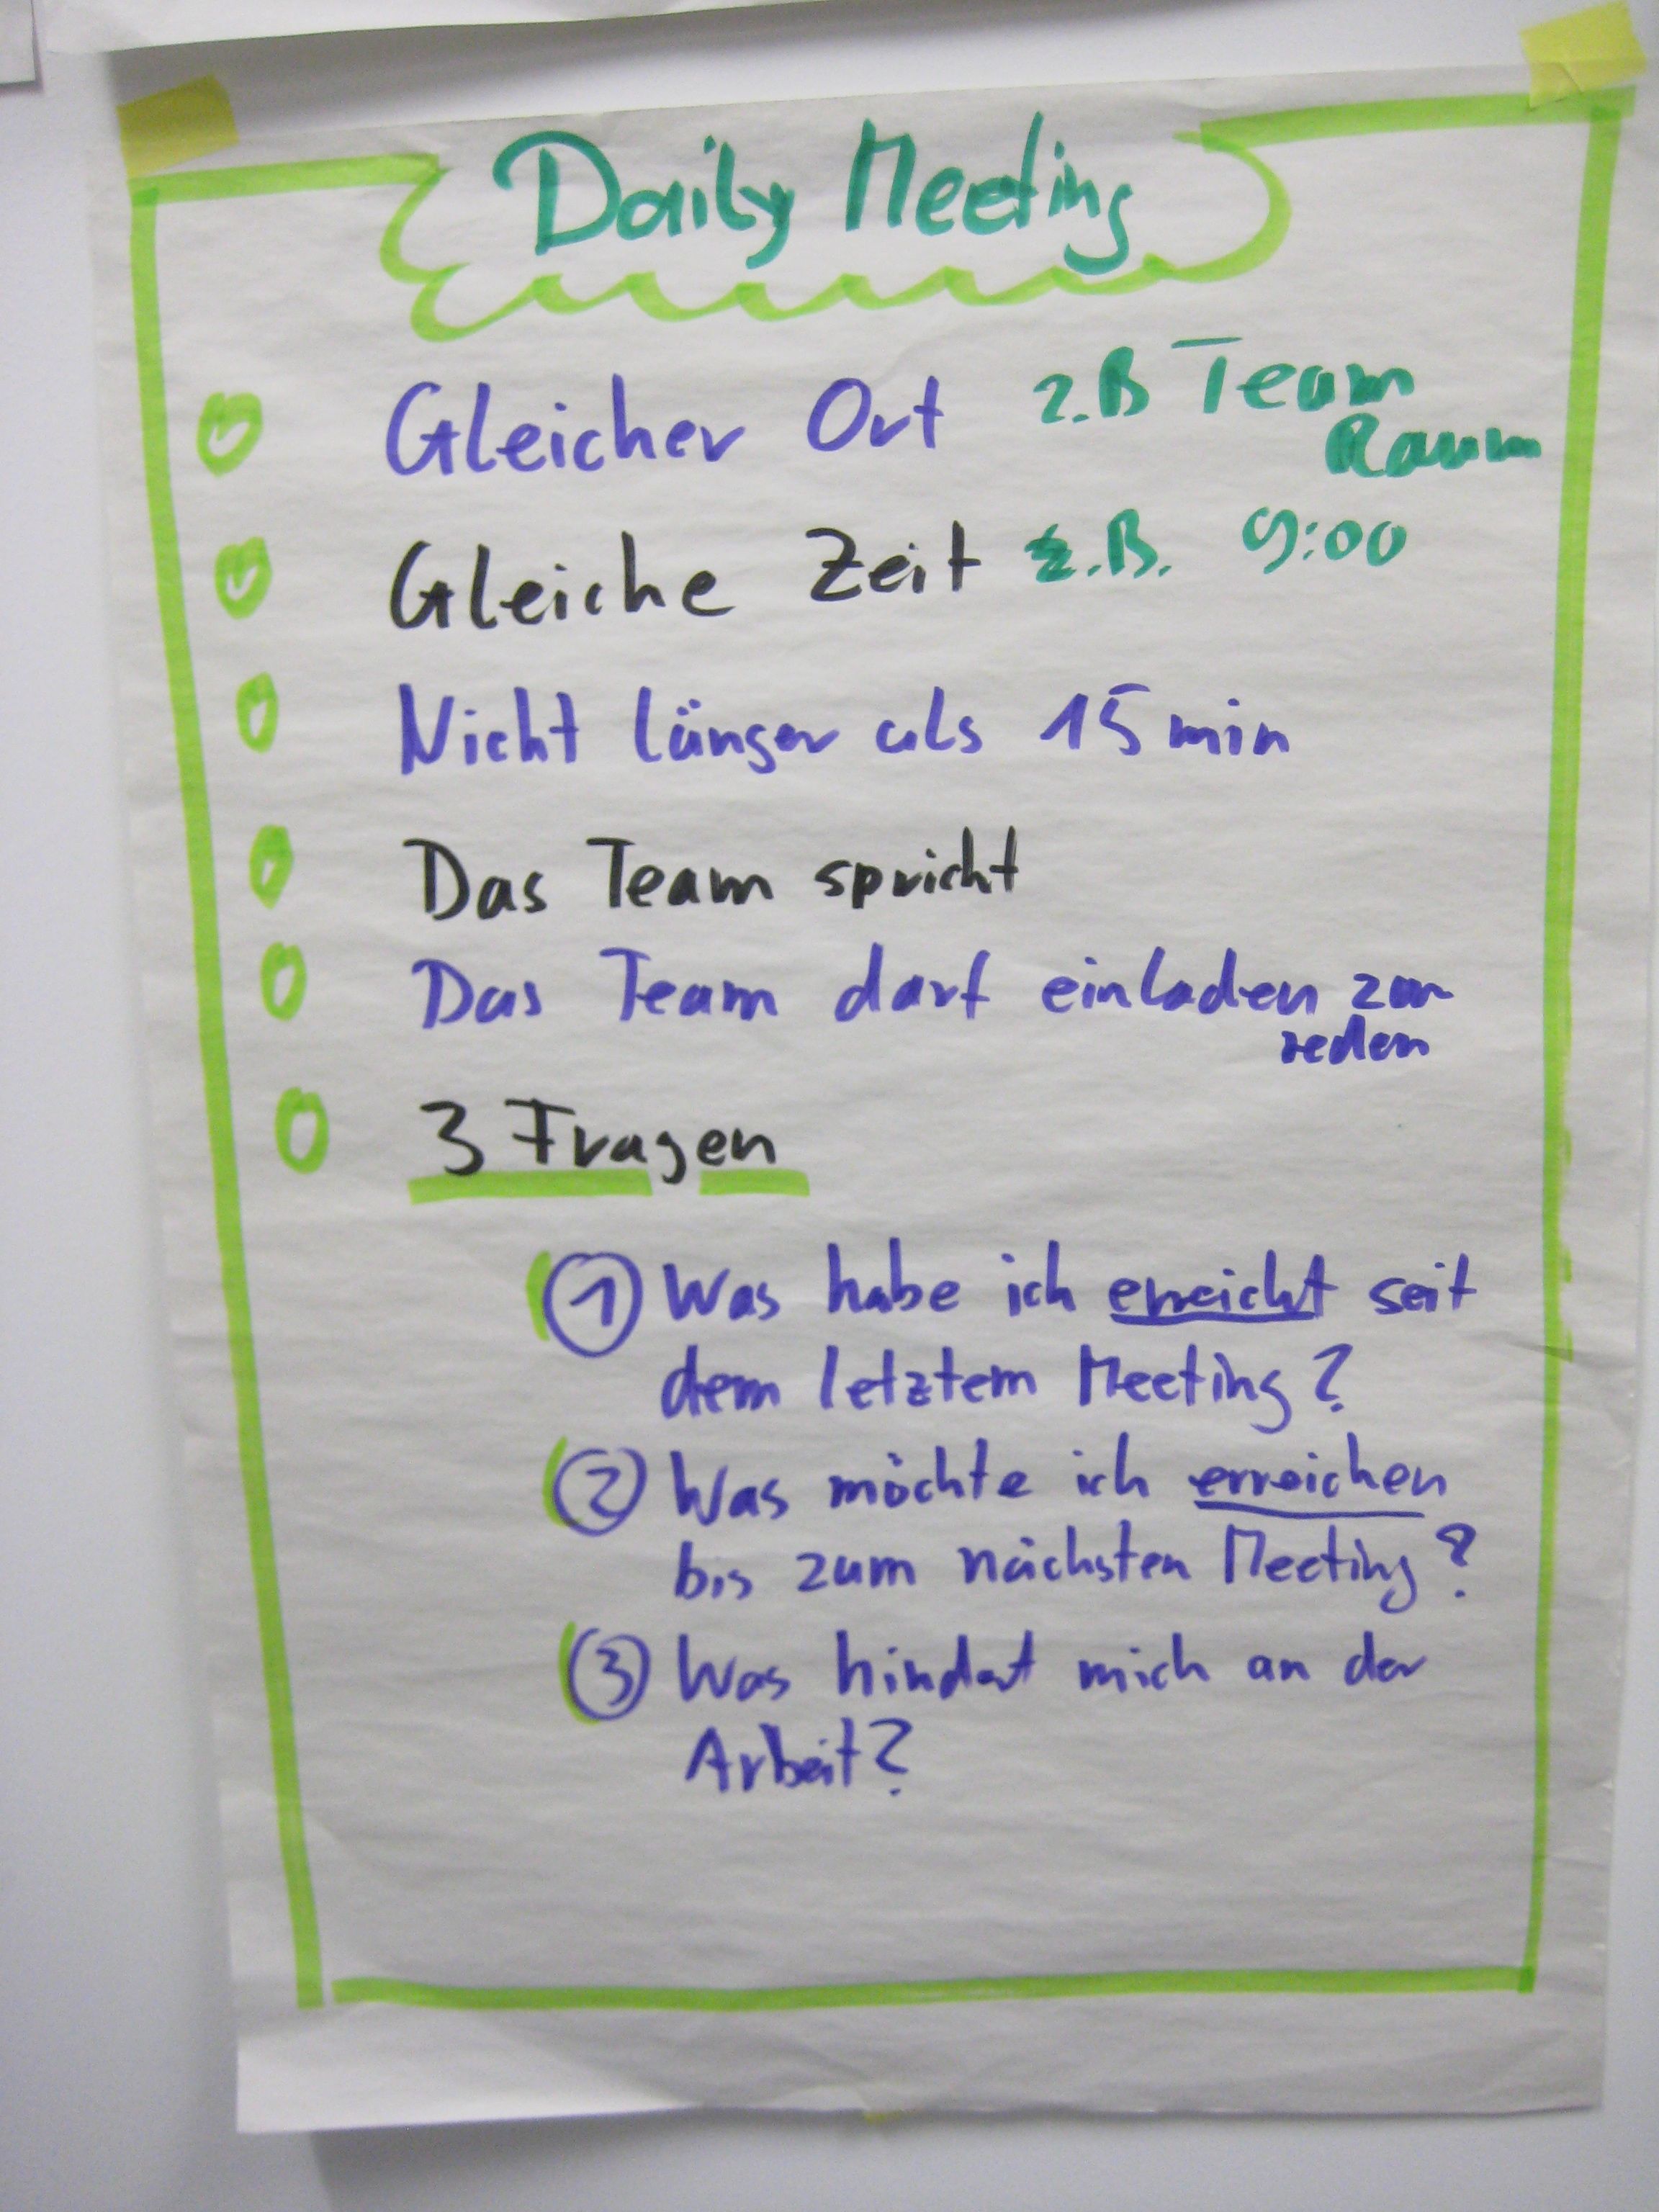 Daily Meeting
Gleicher Ort z.B Team
Raum
Gleiche Zeit z.B. 9:00
Nicht länger als 15 min
Das Team spricht
Das Team darf einladen zum
reden
3 Fragen
1 Was habe ich erreicht seit
dem letztem Meeting?
2 Was möchte ich erreichen
bis zum nächsten Meeting?
3 Was hindert mich an der
Arbeit?